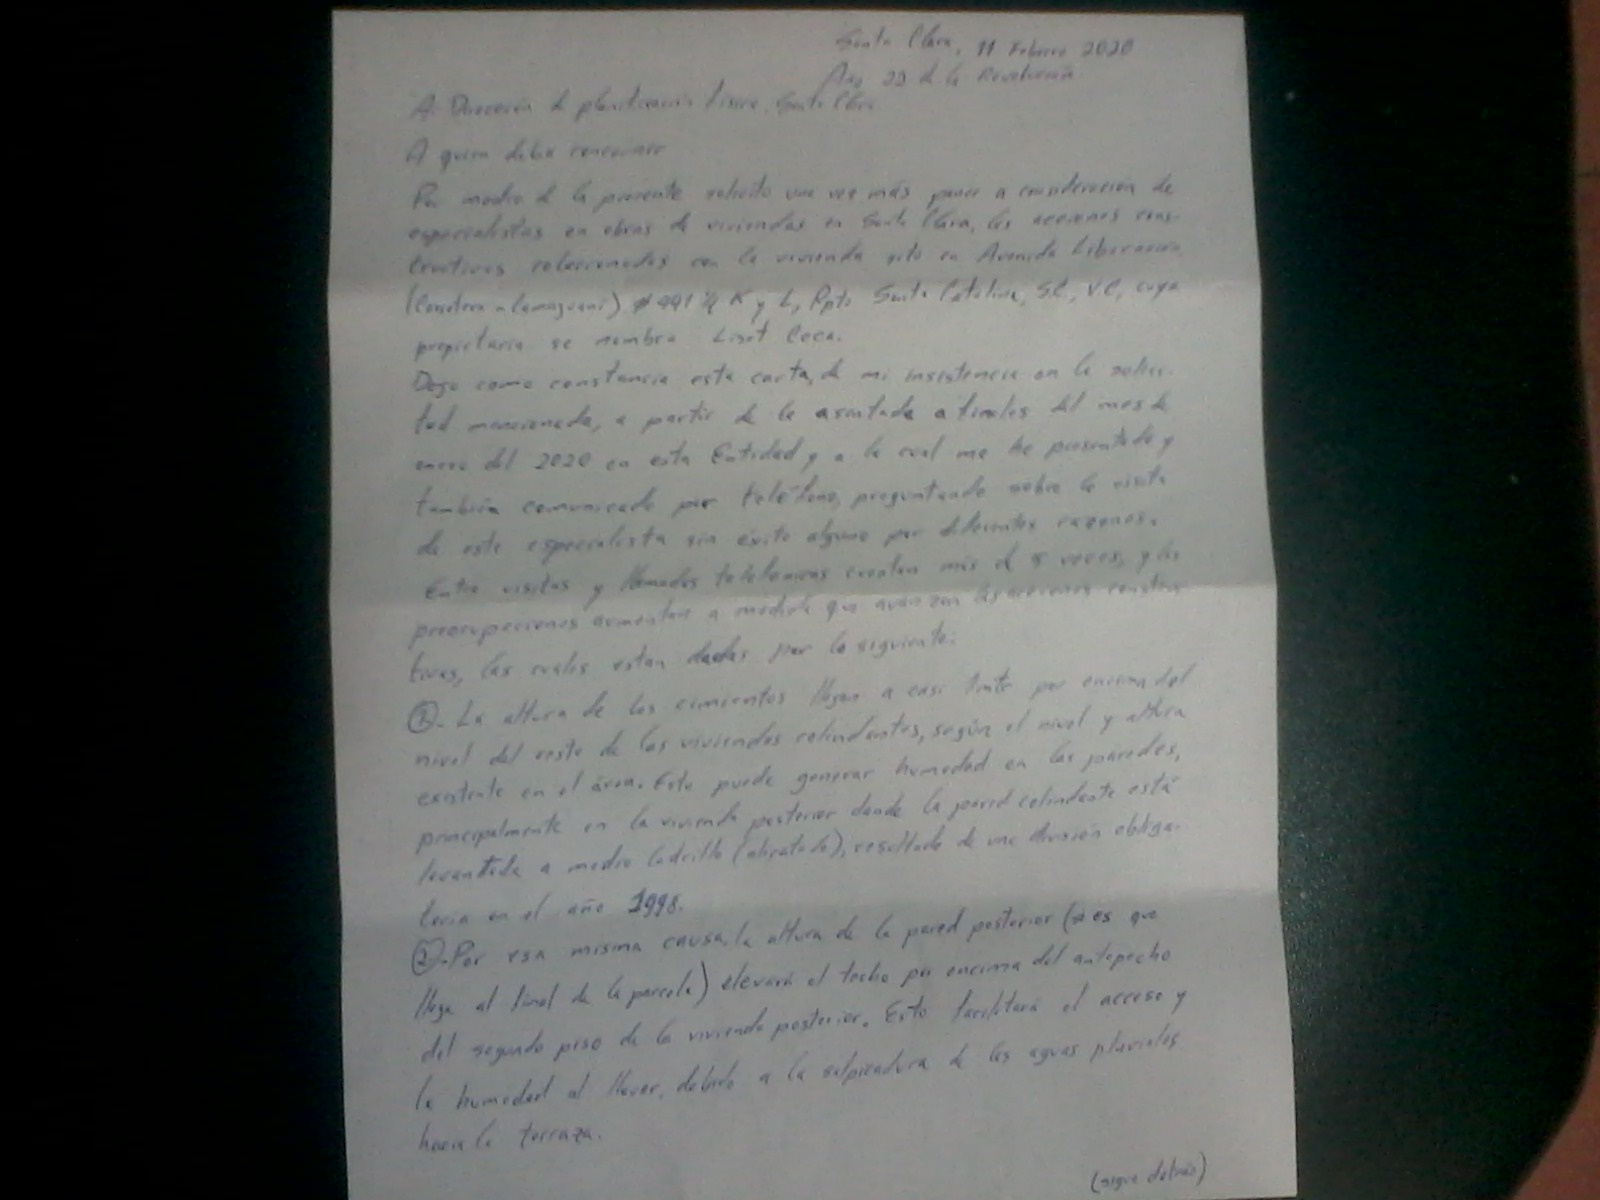 Santa Clara, 11 Febrero 2020
Año 22 de la Revolución
A: Dirección de planificación física, Santa Clara
A quien deba concernir
Por medio de la presente solicito una vez más poner a consideración de
especialistas en obras de viviendas en Santa Clara, las acciones cons-
tructivas relacionadas con la vivienda sito en Avenida Liberación
(Carretera a Camajuaní) # 441 % K y L, Rpto Santa Catalina, S.C., V.C, cuya
propietaria se nombra Liset Coca.
Dejo como constancia esta carta, de mi insistencia en la solici-
tud mencionada, a partir de la asentada a finales del mes de
enero del 2020 en esta Entidad y a la cual me he presentado y
también comunicado por teléfono, preguntando sobre la visita
de este especialista sin éxito alguno por diferentes razones.
Entre visitas y llamadas telefónicas cuentan más de 8 veces, y las
preocupaciones aumentan a medida que avanzan las acciones construc-
tivas, las cuales estan dadas por lo siguiente:
①. La altura de los cimientos llegan a casi 1mts por encima del
nivel del resto de las viviendas colindantes, según el nivel y altura
existente en el área. Esto puede generar humedad en las paredes,
principalmente en la vivienda posterior donde la pared colindante está
levantada a medio ladrillo (alicatado), resultado de una división obliga-
toria en el año 1998.
②. Por esa misma causa, la altura de la pared posterior (si es que
llega al final de la parcela) elevará el techo por encima del antepecho
del segundo piso de la vivienda posterior. Esto facilitará el acceso y
la humedad al llover, debido a la salpicadura de las aguas pluviales
hacia la terraza.
(sigue detrás)